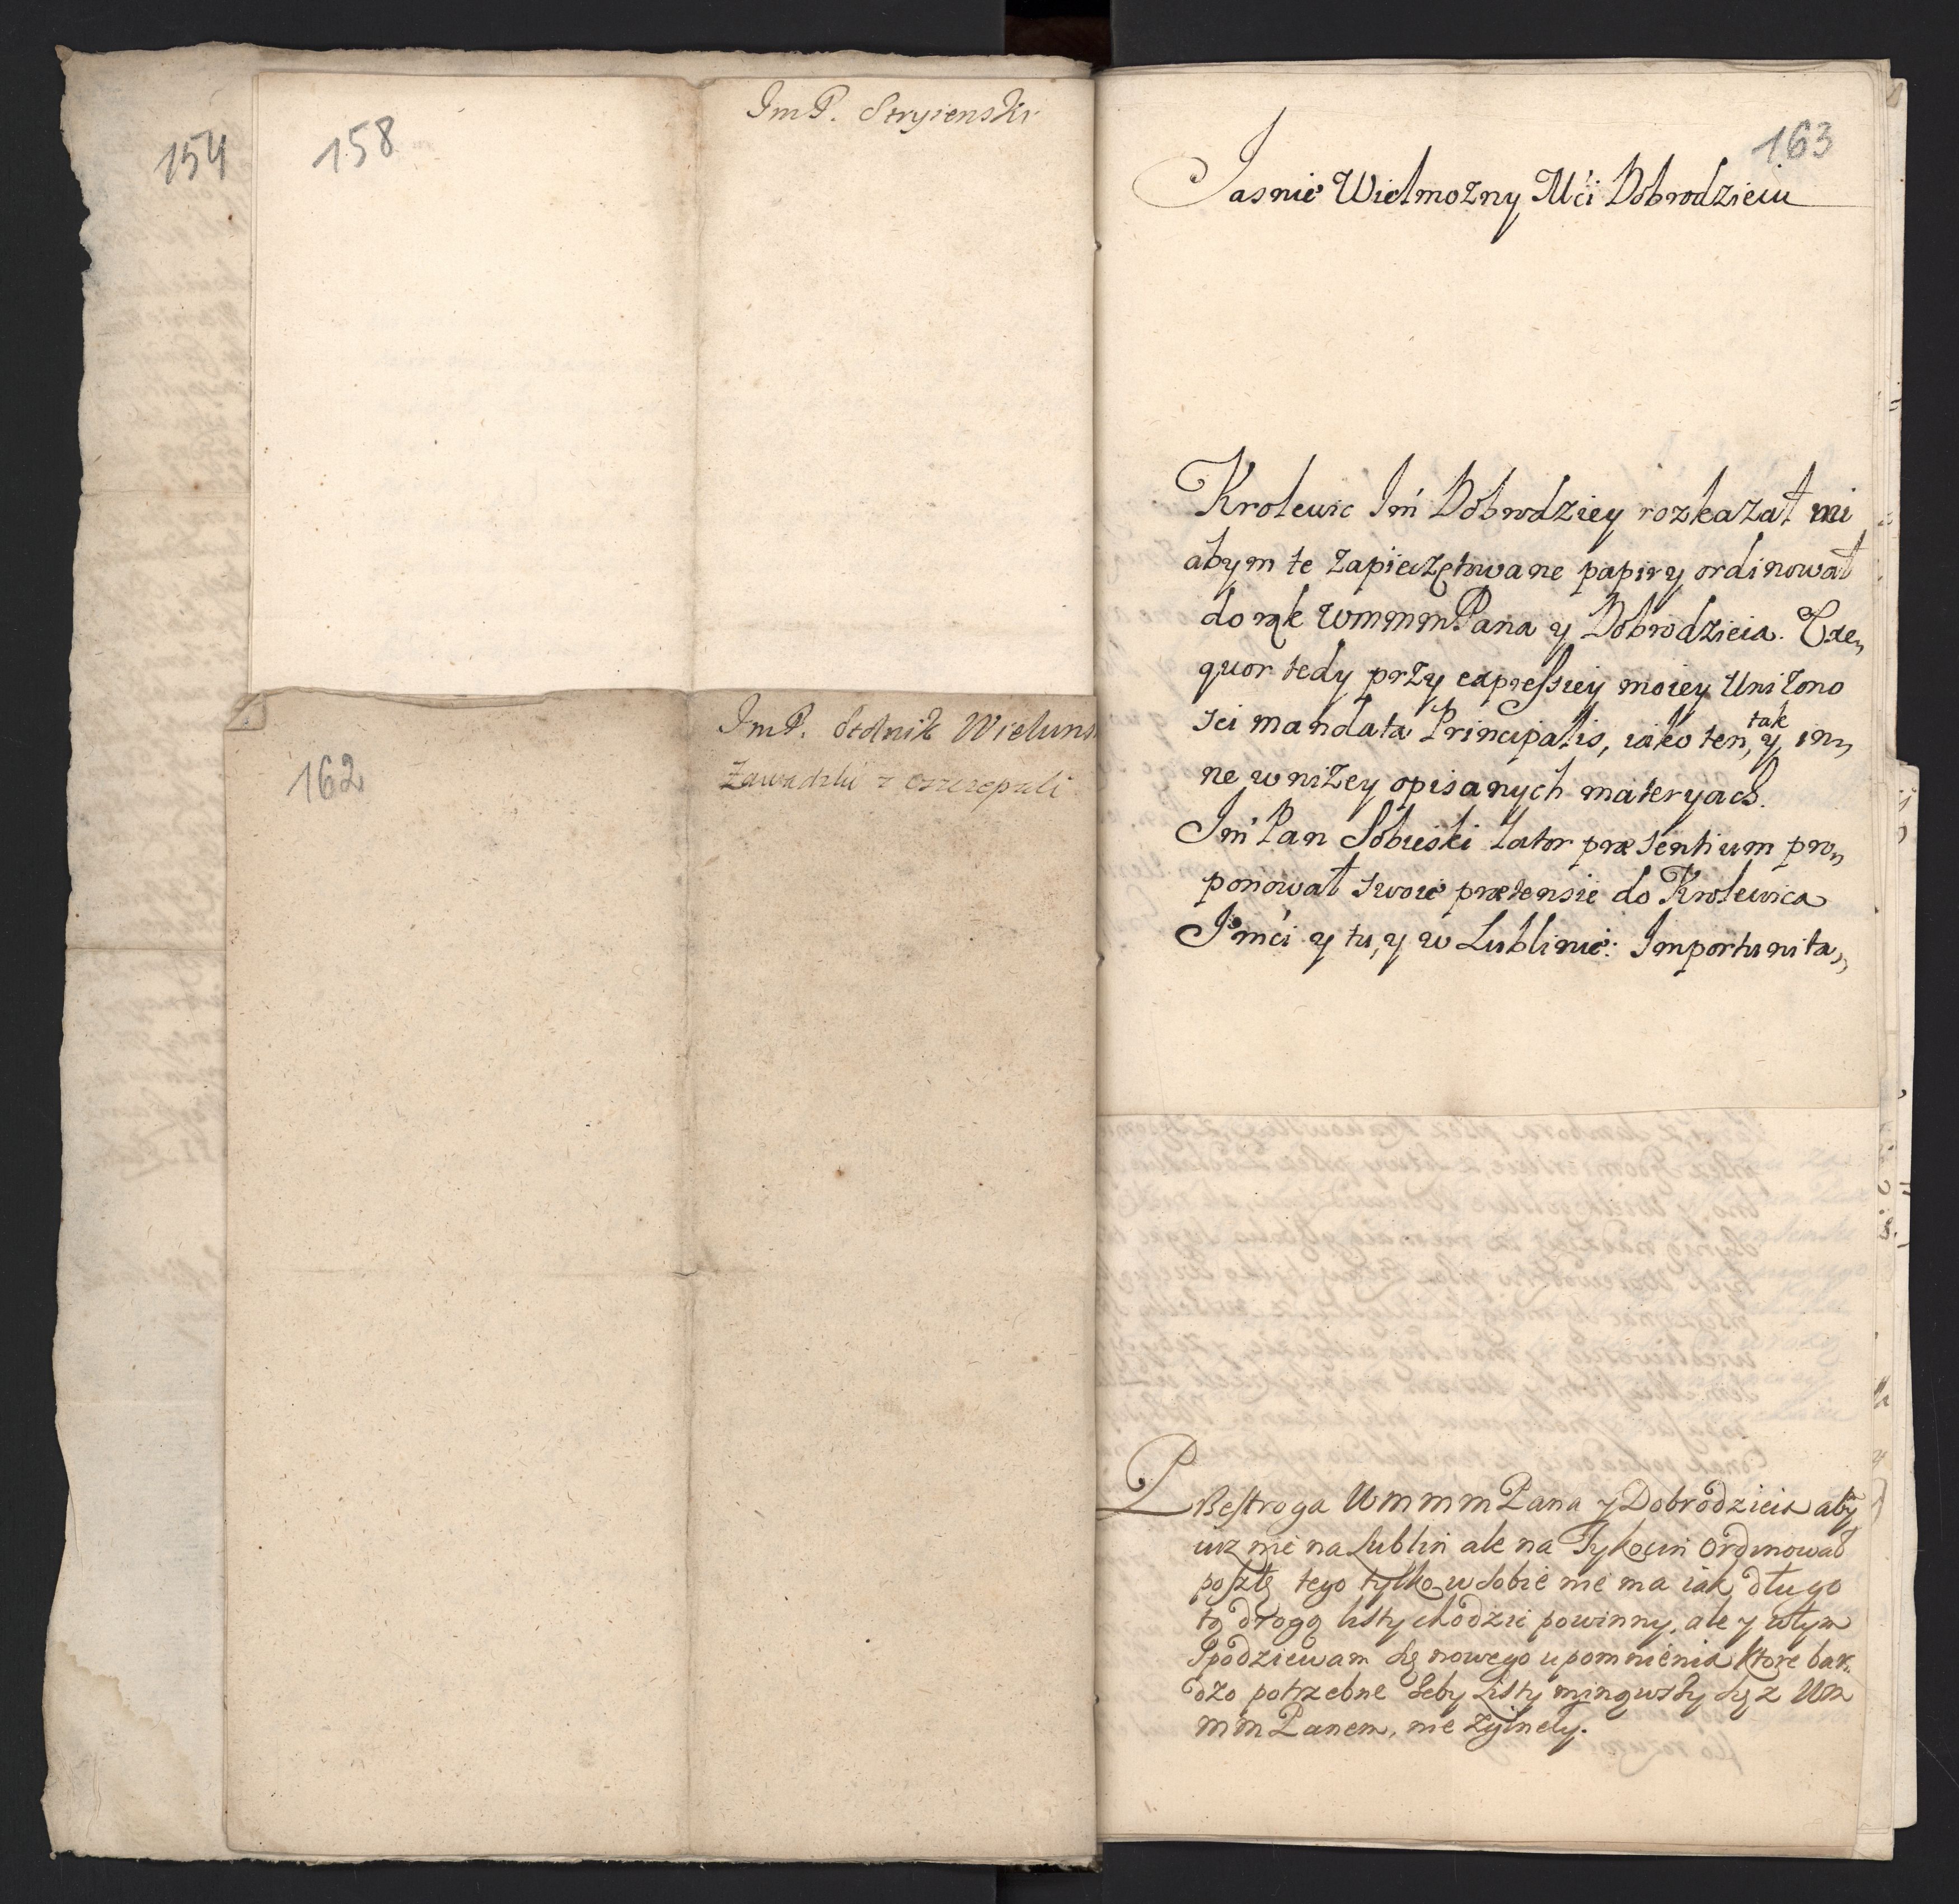 154
158
ImP. Stryienski
162
ImP. Stolnik Wieluns
Zawadzki z
163
Jasnie Wielmozny Mći Dobrodzieiu
Krolewic Im Dobrodziey rozkazał mi
abym te zapieczętowane papiry ordinował
do rąk WmmmPana y Dobrodzieia. Exe„
quor tedy przy expressiey moiey Unizono
sci mandata Principalis, iako ten, tak y in„
ne w nizey opisanych materyach.
Im Pan Sobieski Lator præsentium pro„
ponował swoie prætensie do Krolewica
Jmći y tu, y w Lublinie: Importunita„
Przestroga WmmmPana y Dobrodzieia aby
iuz nie na Lublin ale na Tykocin ordinował
posztę tego tylko w sobie nie ma iak długo
tą drogą listy chodzic powinny, ale y w tym
Spodziewam się nowego upomnienia ktore bar„
dzo potrzebne zeby Listy minąwszy się z Wm
mmPanem, nie zginely.